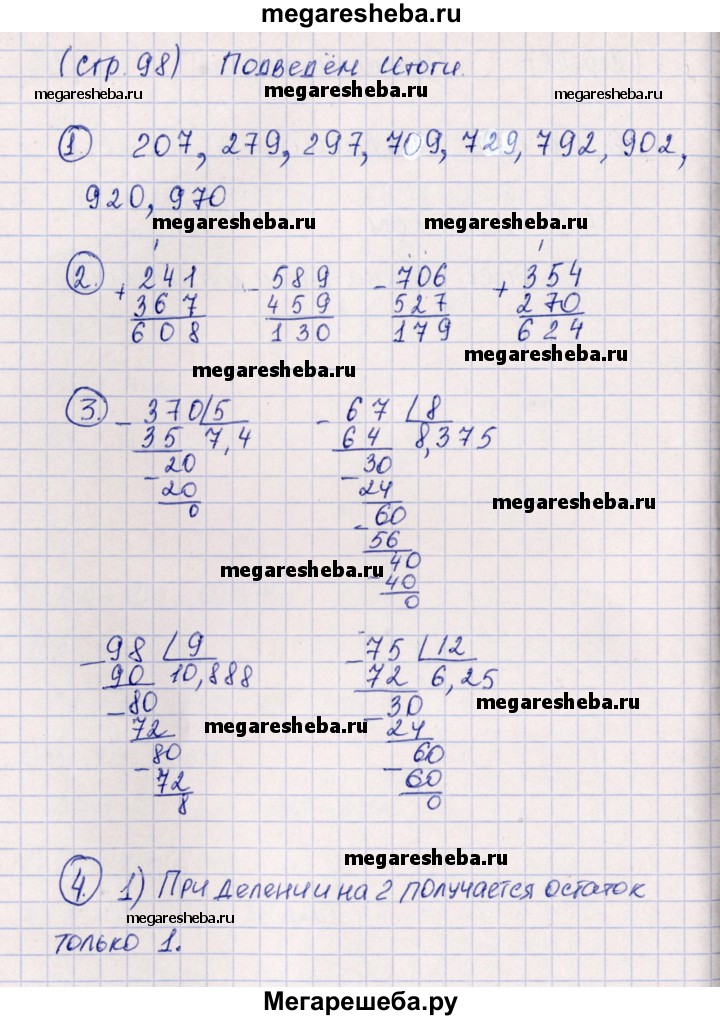 megaresheba.ru
(стр. 98) Подведём итоги.
megaresheba.ru megaresheba.ru megaresheba.ru
1) 207, 279, 297, 709, 729, 792, 902,
920, 970
megaresheba.ru megaresheba.ru
2. + 241 - 589 - 706 + 354
367 459 527 270
608 130 179 624
megaresheba.ru
megaresheba.ru
3. - 370 5 - 67 8
35 7,4 64 8,375
- 20 - 30
20 24
0 - 60
megaresheba.ru
56
megaresheba.ru
- 40
40
0
- 98 9 - 75 12
90 10,888 72 6,25
- 80 - 30
megaresheba.ru
72 24
megaresheba.ru
- 80 - 60
72 60
8 0
megaresheba.ru
4. 1) При делении на 2 получается остаток
megaresheba.ru
только 1.
Мегарешеба.ру